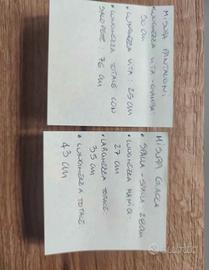 MISURE PANTALONI
LUNGHEZZA VITA-CAVIGLIA
90 cm
• LARGHEZZA VITA: 25 cm
• LUNGHEZZA TOTALE CON
SALOPETTE: 76 cm
MISURE GIACCA
• SPALLA - SPALLA 28 cm
• LUNGHEZZA MANICA
27 cm
• LARGHEZZA TORACE
35 cm
• LUNGHEZZA TOTALE
43 cm
subito